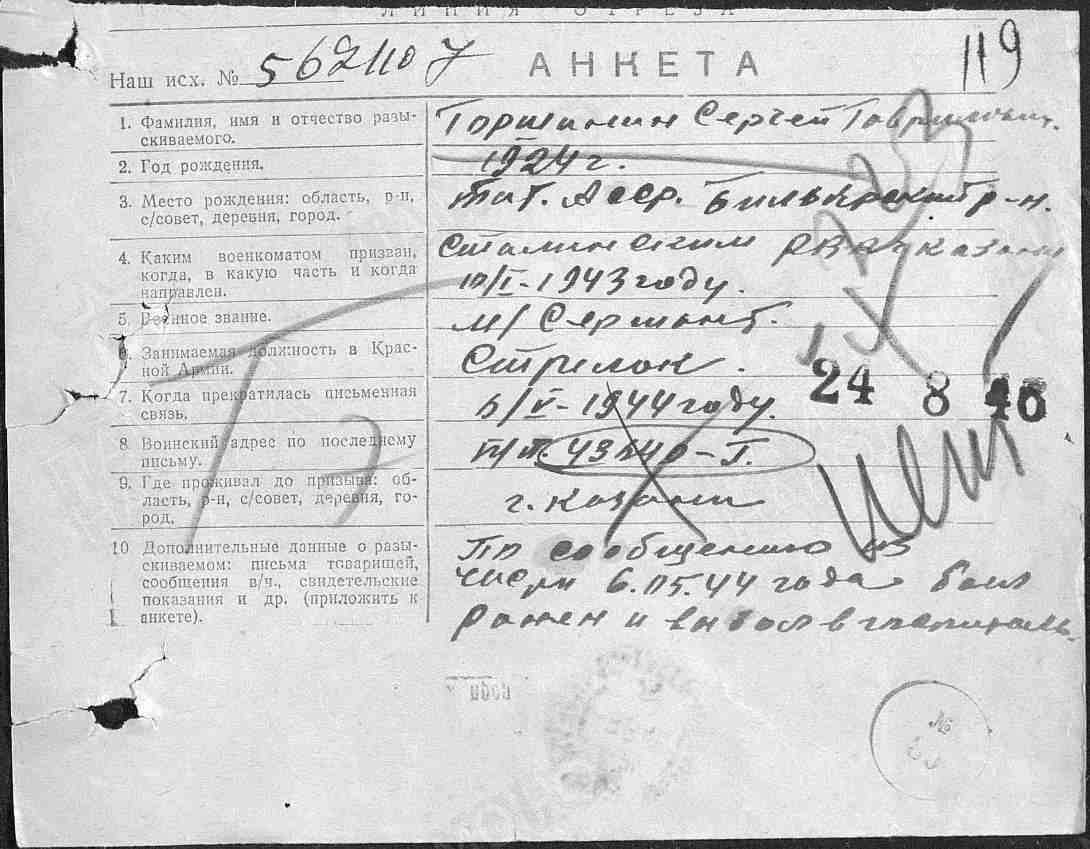 ЛИНИЯ ОТРЕЗА
119
Наш исх. № 562110 АНКЕТА
1. Фамилия, имя и отчество разы-
скиваемого.
Горшинин Сергей Гаврилович.
2. Год рождения.
1924 г.
3. Место рождения: область, р-н,
с/совет, деревня, город.
Тат. Асср. Билярский р-н.
4. Каким военкоматом призван,
когда, в какую часть и когда
направлен.
Сталинским РВК г. Казани
I-1943 году.
5. Военное звание.
м/Сержант.
6. Занимаемая должность в Крас-
ной Армии.
Стрелок.
7. Когда прекратилась письменная
связь.
в/V-1944 году.
8 Воинский адрес по последнему
письму.
п/п. -Г.
9. Где проживал до призыва: об-
ласть, р-н, с/совет, деревня, го-
род.
г. Казани
10 Дополнительные данные о разы-
скиваемом: письма товарищей,
сообщения в/ч., свидетельские
показания и др. (приложить к
анкете).
По сообщению из
части 6.05.44 года был
ранен и выбыл в госпиталь.
24 8 46
№